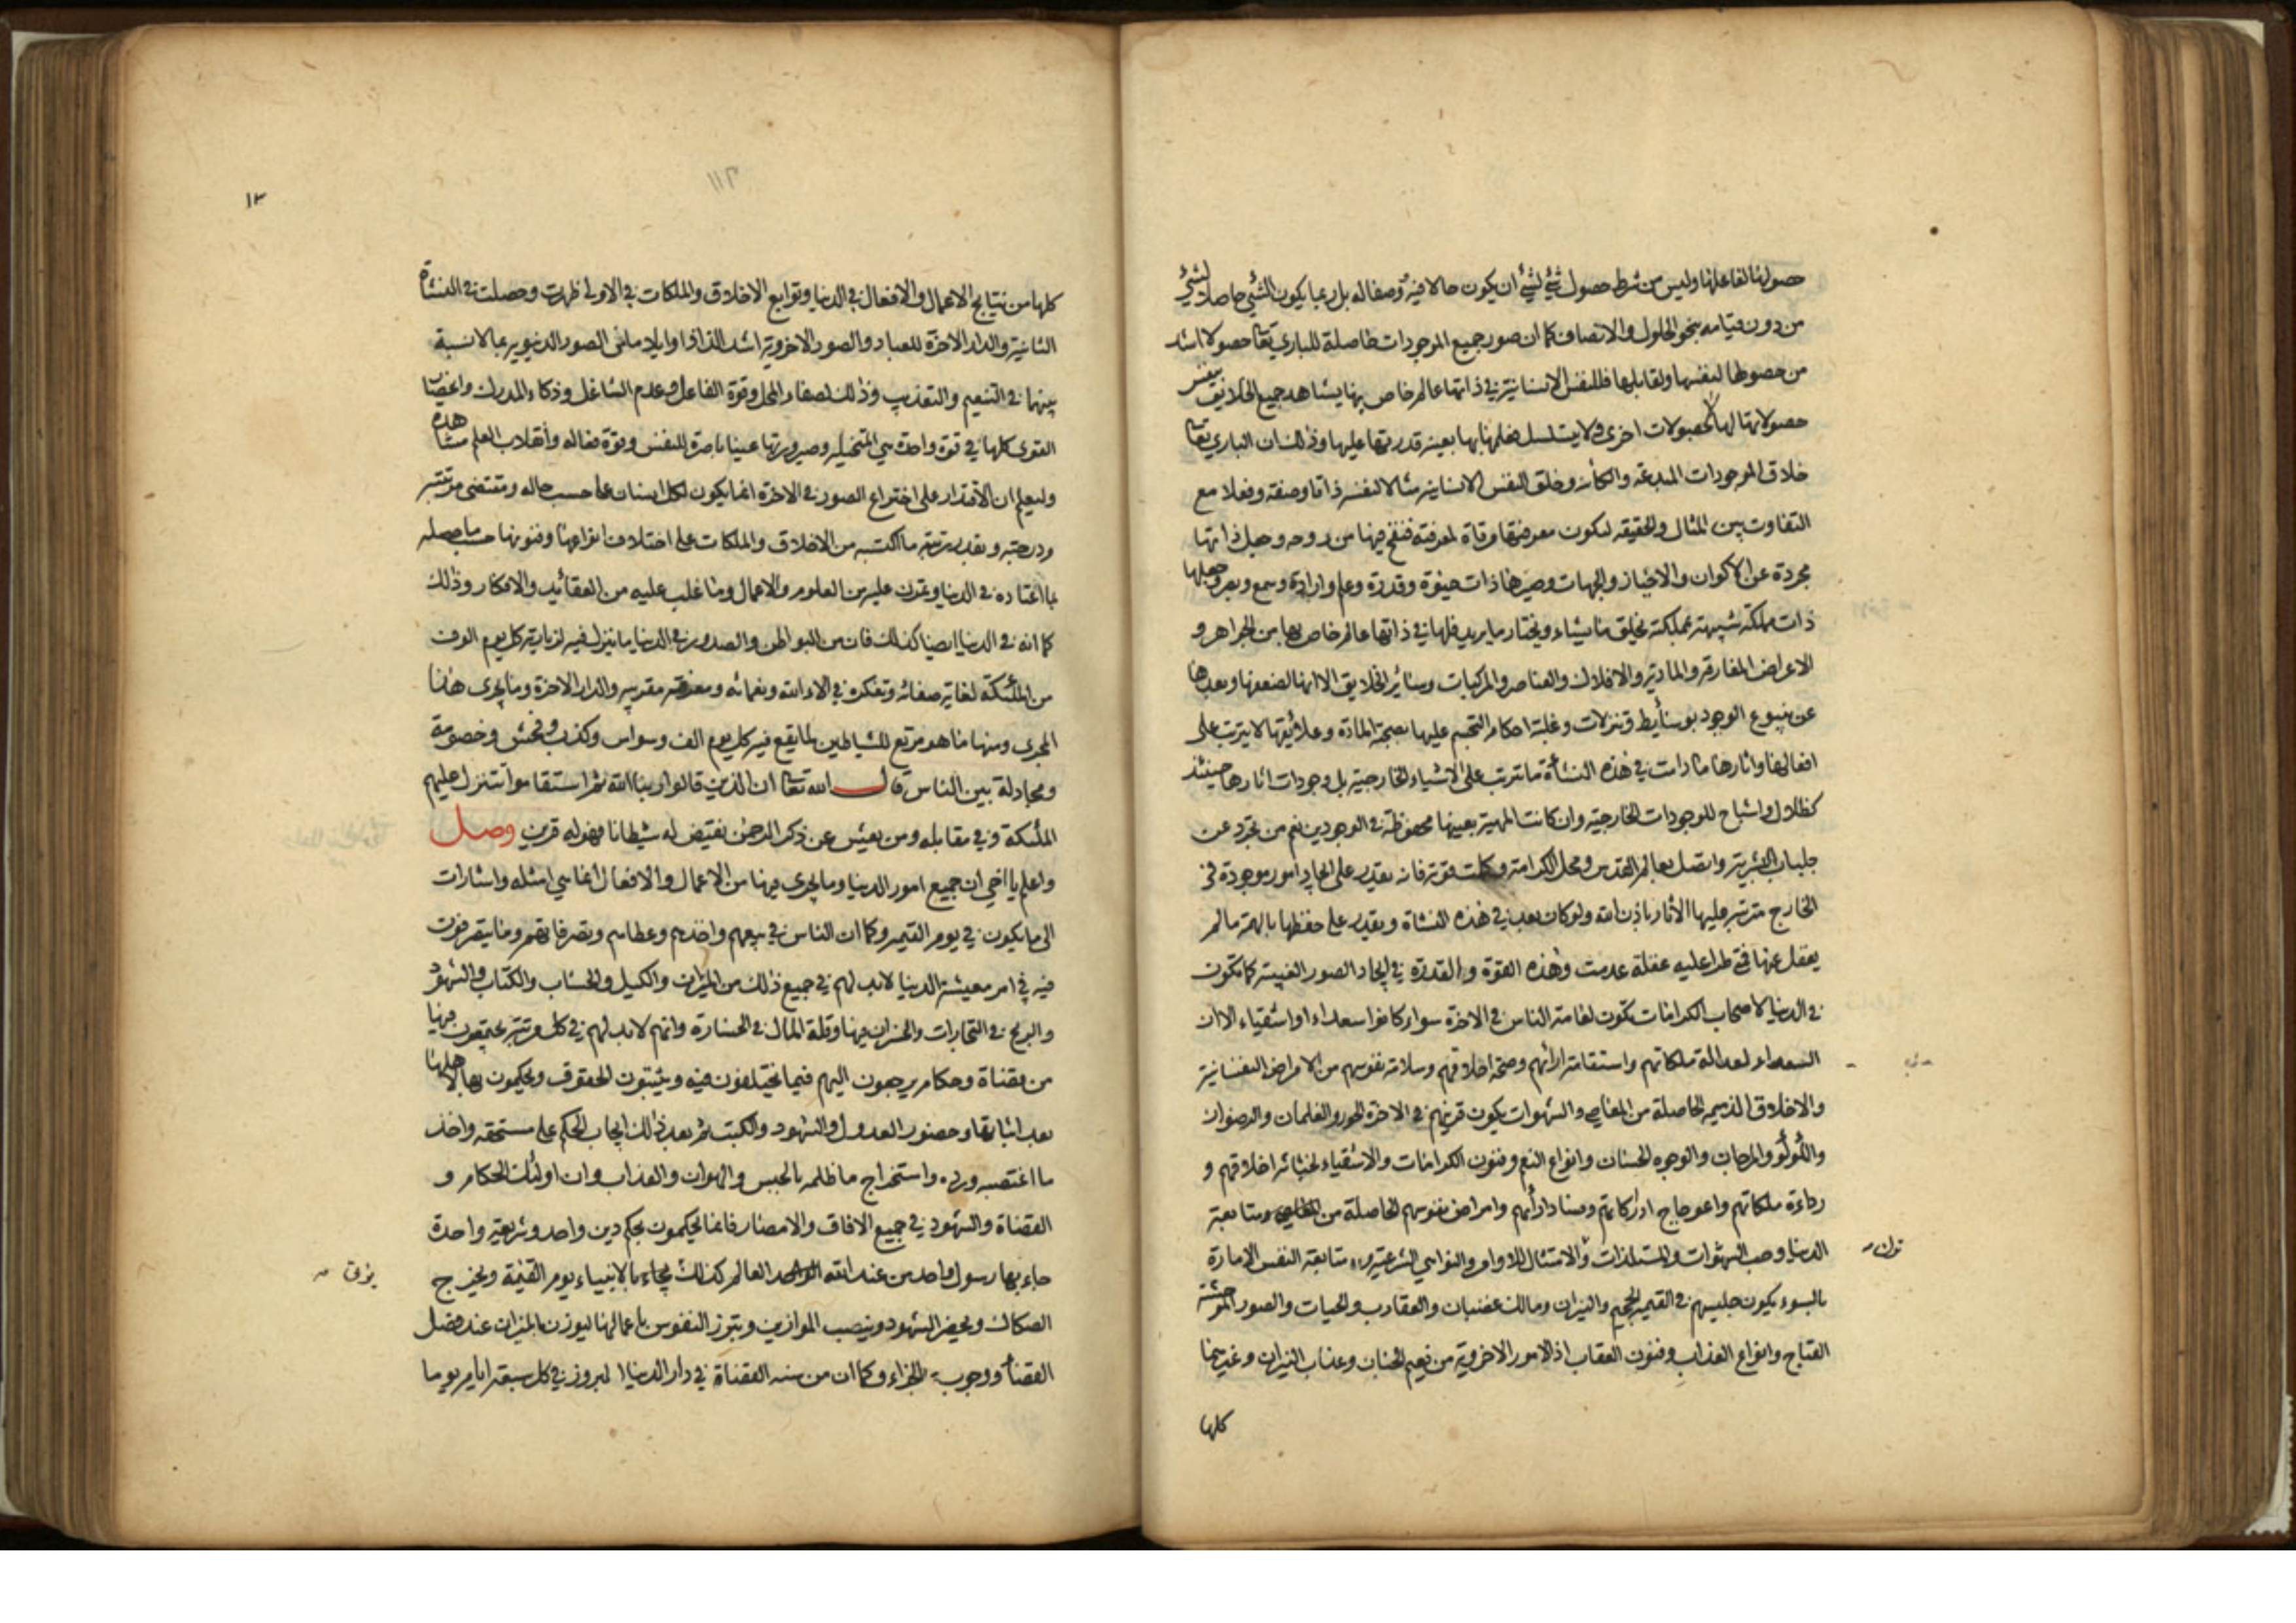 حصولها لفاعلها وليس من شرط حصول شئ لشئ ان يكون حالا فيه وصفا له بل ربما يكون الشئ حاصلا لشئ
من دون قيامه بنحو الحلول والاتصاف كما ان صور جميع الموجودات حاصلة للباري تعا حصولا اشد
من حصولها لنفسها ولقابلها فللنفس الانسانية في ذاتها عالم خاص بها يشاهد جميع الخلايق بنفس
حصولاتها لها لا بحصولات اخرى ولا يتسلسل فعلمها بها بعينه قدرتها عليها وذلك ان الباري تعا
خلاق الموجودات المبدعة والكائنة وخلق النفس الانسانية مثالا لنفسه ذاتا وصفة وفعلا مع
التفاوت بين المثال والحقيقه لتكون معرفتها مرقاة لمعرفته فنفخ فيها من روحه وجعل ذاتها
مجردة عن الاكوان والاحياز والجهات وصيرها ذات حيوة وقدرة وعلم وارادة وسمع وبصر وجعلها
ذات مملكة شبيهة بمملكته يخلق ما يشاء ويختار ما يريد فلها في ذاتها عالم خاص بها من الجواهر و
الاعراض المفارقه والمادية والافلاك والعناصر والمركبات وسائر الخلايق الا انها لضعفها وبعدها
عن ينبوع الوجود بوسائط وتنزلات وغلبة احكام التجسم عليها بصحبة المادة وعلائقها لا يترتب على
افعالها واثارها ما دامت في هذه النشأة ما تترتب على الاشياء الخارجية بل وجودات اثارها حينئذ
كظلال واشباح للوجودات الخارجية وان كانت المهية بعينها محفوظة في الوجودين نعم من تجرد عن
جلباب البشرية واتصل بعالم القدس ومحل الكرامة وكملت قوته فانه يقدر على ايجاد امور موجودة في
الخارج مترتبه عليها الآثار باذن الله ولو كان بعد في هذه النشاة ويقدر على حفظها بالهمة ما لم
يغفل عنها فمتى طرا عليه غفلة عدمت وهذه القوة والقدرة في ايجاد الصور الغيبية كما تكون
في الدنيا لاصحاب الكرامات تكون لعامة الناس في الاخرة سواء كانوا سعداء او اشقياء الا ان
السعداء لعدالة ملكاتهم واستقامة ارائهم وصحة اخلاقهم وسلامة نفوسهم من الامراض النفسانية
والاخلاق الذميمه الحاصلة من المعاصي والشهوات يكون قرينهم في الاخرة الحور والغلمان والرضوان
واللؤلؤ والمرجان والوجوه الحسان وانواع النعم وفنون الكرامات والاشقياء لخباثة اخلاقهم و
رداءة ملكاتهم واعوجاج ادراكاتهم وفساد ارائهم وامراض نفوسهم الحاصلة من المعاصي ومتابعة
الدنيا وحب الشهوات والمستلذات والامتثال للاوامر والنواهي الشرعيه ومتابعة النفس الامارة
بالسوء يكون جليسهم في القيمه الجحيم والنيران ومالك غضبان والعقارب والحيات والصور الموحشة
القباح وانواع العذاب وفنون العقاب اذ الامور الاخروية من نعيم الجنان وعذاب النيران وغيرهما
كلها
ترك
١٣
كلها من نتايج الاعمال والافعال في الدنيا وتوابع الاخلاق والملكات في الاولى ظهرت وحصلت في النشأة
الثانية والدار الاخرة للعباد والصور الاخروية اشد الذاذا وايلاما من الصور الدنيوية بما لا نسبة
بينهما في التنعيم والتعذيب وذلك لصفاء المحل وقوة الفاعل وعدم الشاغل وذكاء المدرك وانحصار
القوى كلها في قوة واحدة هي المتخيله وصيرورتها عينا باصرة للنفس وقوة فعاله وانقلاب العلم مشاهدة
وليعلم ان الاقتدار على اختراع الصور في الاخرة انما يكون لكل انسان على حسب حاله ومقتضى مرتبته
ودرجته وبقدر رتبته ما اكتسبه من الاخلاق والملكات على اختلاف انواعها وفنونها حسب ما حصله
بما اعتاده في الدنيا وتمرن عليه من العلوم والاعمال وما غلب عليه من العقائد والافكار وذلك
كما انه في الدنيا ايضا كذلك فان من البواطن والصدور في الدنيا ما ينزل فيه لزيارته كل يوم الوف
من الملئكة لغاية صفائه وتفكره في الاء الله ونعمائه ومعرفته مقربيه والدار الاخرة وما يجرى هذا
المجرى ومنها ما هو مرتع للشياطين لما يقع فيه كل يوم الف وسواس وكذب وفحش وخصومة
ومجادلة بين الناس قال الله تعا ان الذين قالوا ربنا الله ثم استقاموا تتنزل عليهم
الملئكة وفي مقابله ومن يعش عن ذكر الرحمن نقيض له شيطانا فهو له قرين وصل
واعلم يا اخي ان جميع امور الدنيا وما يجرى فيها من الاعمال والافعال انما هي امثله واشارات
الى ما يكون في يوم القيمه وكما ان الناس في بيعهم واخذهم وعطائهم وتصرفاتهم وما يتصرفون
فيه في امر معيشة الدنيا لا بد لهم في جميع ذلك من الميزان والكيل والحساب والكتاب والشهود
والربح في التجارات والخسران فيها وقلة المال في الخسارة وانهم لا بد لهم في كل مرتبة يجتمعون فيها
من قضاة وحكام يرجعون اليهم فيما يختلفون فيه ويثبتون الحقوق ويحكمون بها لاهلها
بعد اثباتها وحضور العدول والشهود والكتب ثم بعد ذلك ايجاب الحكم على مستحقه واخذ
ما اغتصبه ورده واستخراج ما ظلمه بالحبس والهوان والعذاب وان اولئك الحكام و
القضاة والشهود في جميع الافاق والامصار فانما يحكمون بحكم دين واحد وشريعة واحدة
جاء بها رسول واحد من عند الله الواحد العالم كذلك يجاء بالانبياء يوم القيمة ويخرج
الصكاك ويحضر الشهود وينصب الموازين وتبرز النفوس باعمالها ليوزن بالميزان عند فصل
القضاء ووجوب الجزاء وكما ان من سنه القضاة في دار الدنيا البروز في كل سبعة ايام يوما